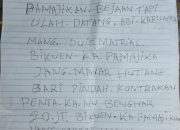 PAMAJIKAN BEJAAN TAPI
ULAH DATANG. ABI KARUNYA
MANG. DUIS MATRIAL
BIKEUN KA PAMAJIKA
JANG MAYAR HUTANG
BARI PINDAH. KONTRAKAN
PENTA KA NU BEUNGHAR
20. JT. BIKEUN KA PAMAJIKAN